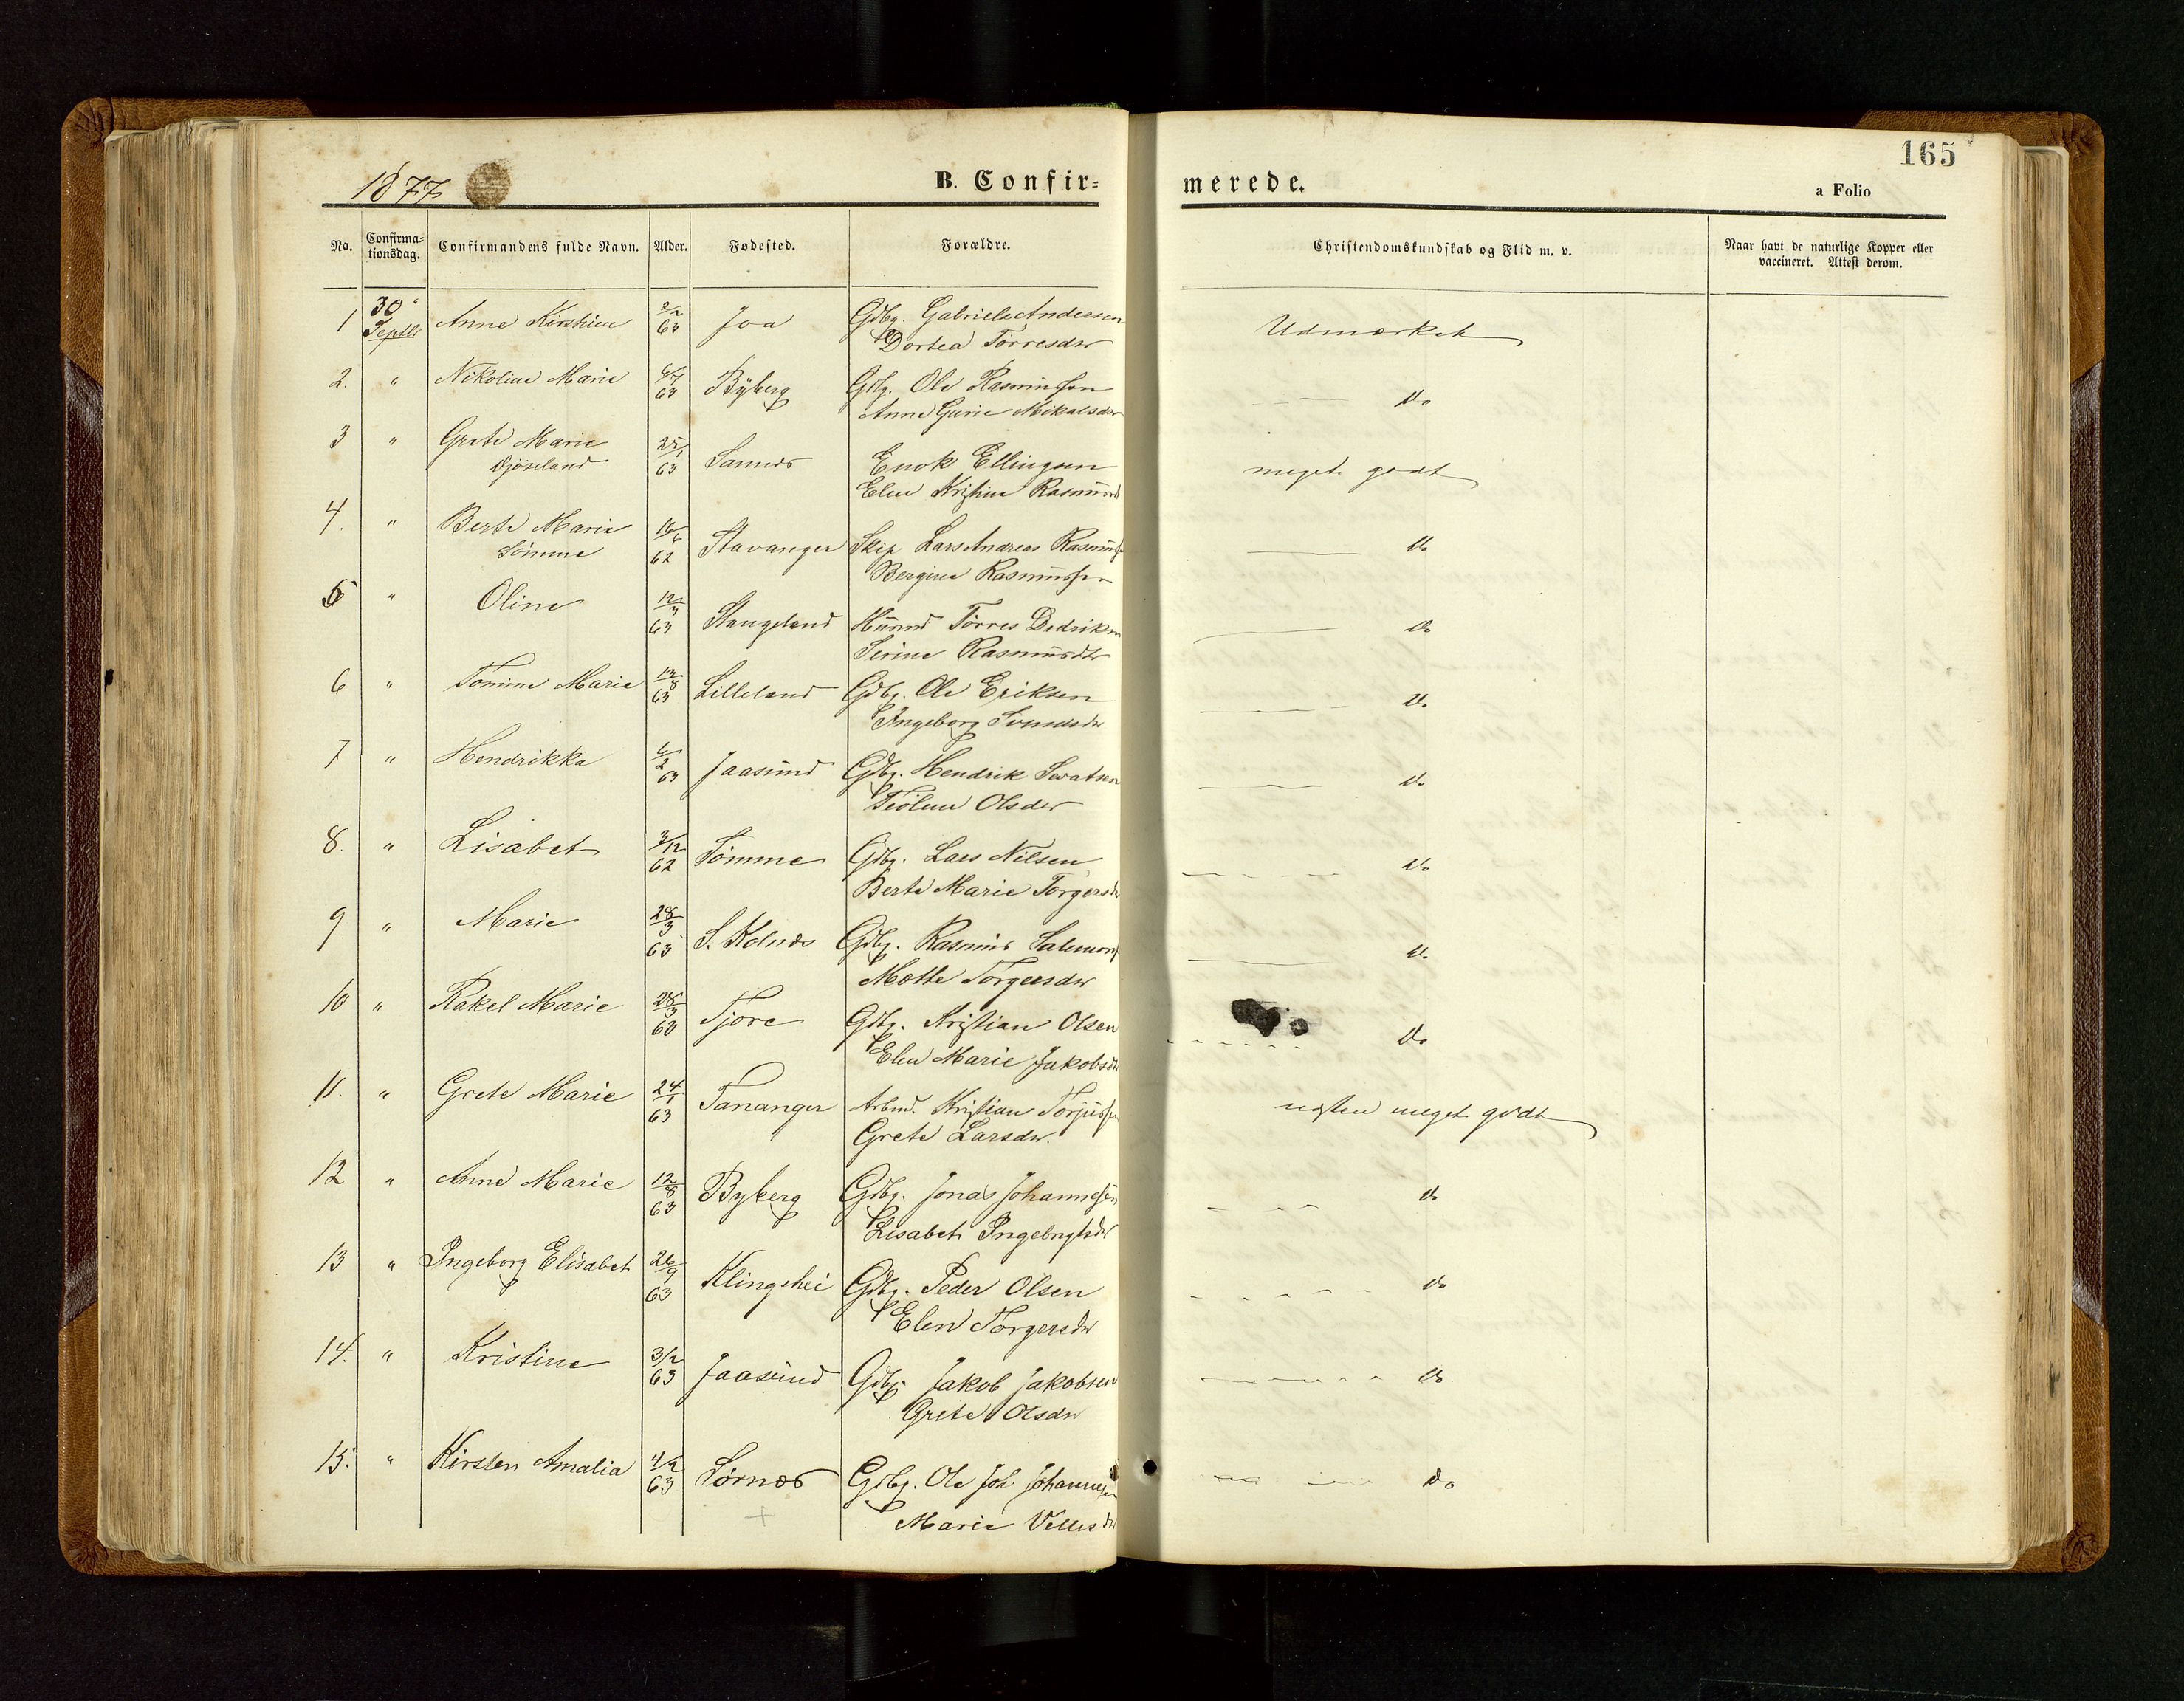 165
1877
B. Confir=
merede.
a Folio
No. Confirma=tionsdag. Confirmandens fulde Navn. Alder. Fødested. Forældre. Christendomskundskab og Flid m. v. Naar havt de naturlige Kopper eller vaccineret. Attest derom.
1 30 Septbr Anne Kirstine 63 Joa Gdbg. Gabriel Andersen Udmærket
Dortea Tørresdtr
2. " Nikoline Marie 63 Byberg Gdbg. Ole Rasmussen Do
Anne Gurie Mikalsdtr
3 " Grete Marie 63 Sannes Enok Ellingsen meget godt
Elen Kristine Rasmusd
4. " Berte Marie 16/6 62 Stavanger Skip Lars Andreas Rasmuss Do
Sömme Bergine Rasmussen
5 " Oline 12/3 63 Stangeland Husmd Tørres Dedriksen Do
Serine Rasmusdtr
6 " Tomine Marie 13/8 63 Lilleland Gdbg. Ole Eriksen Do
Ingeborg Svendsdtr
7 " Hendrikka 6/2 63 Jaasund Gdbg. Hendrik Do
Olsdtr
8. " Lisabet 3/12 62 Sømme Gdbg. Lars Nilsen Do
Berte Marie Torgersdtr
9 " Marie 28/3 63 S. Kolnes Gdbg. Rasmus Salamons Do
Mette Torgersdtr
10 " Rakel Marie 28/3 63 Tjore Gdbg. Kristian Olsen Do
Elen Marie Jakobsdtr
11. " Grete Marie 24/1 63 Tananger Arbmd. Kristian Torjussen næsten meget godt
Grete Larsdtr.
12 " Anne Marie 12/8 63 Byberg Gdbg. Jonas Johannesen do
Lisabet Ingebrigtsdtr
13 " Ingeborg Elisabet 26/9 63 Klingshei Gdbg. Peder Olsen do
Elen Torgersdtr
14. " Kristine 3/2 63 Jaasund Gdbg. Jakob Jakobsen do
Grete Olsdtr
15. " Kirsten Amalia 4/2 63 Sørnæs Gdbg. Ole Joh. Johannesen do
Marie